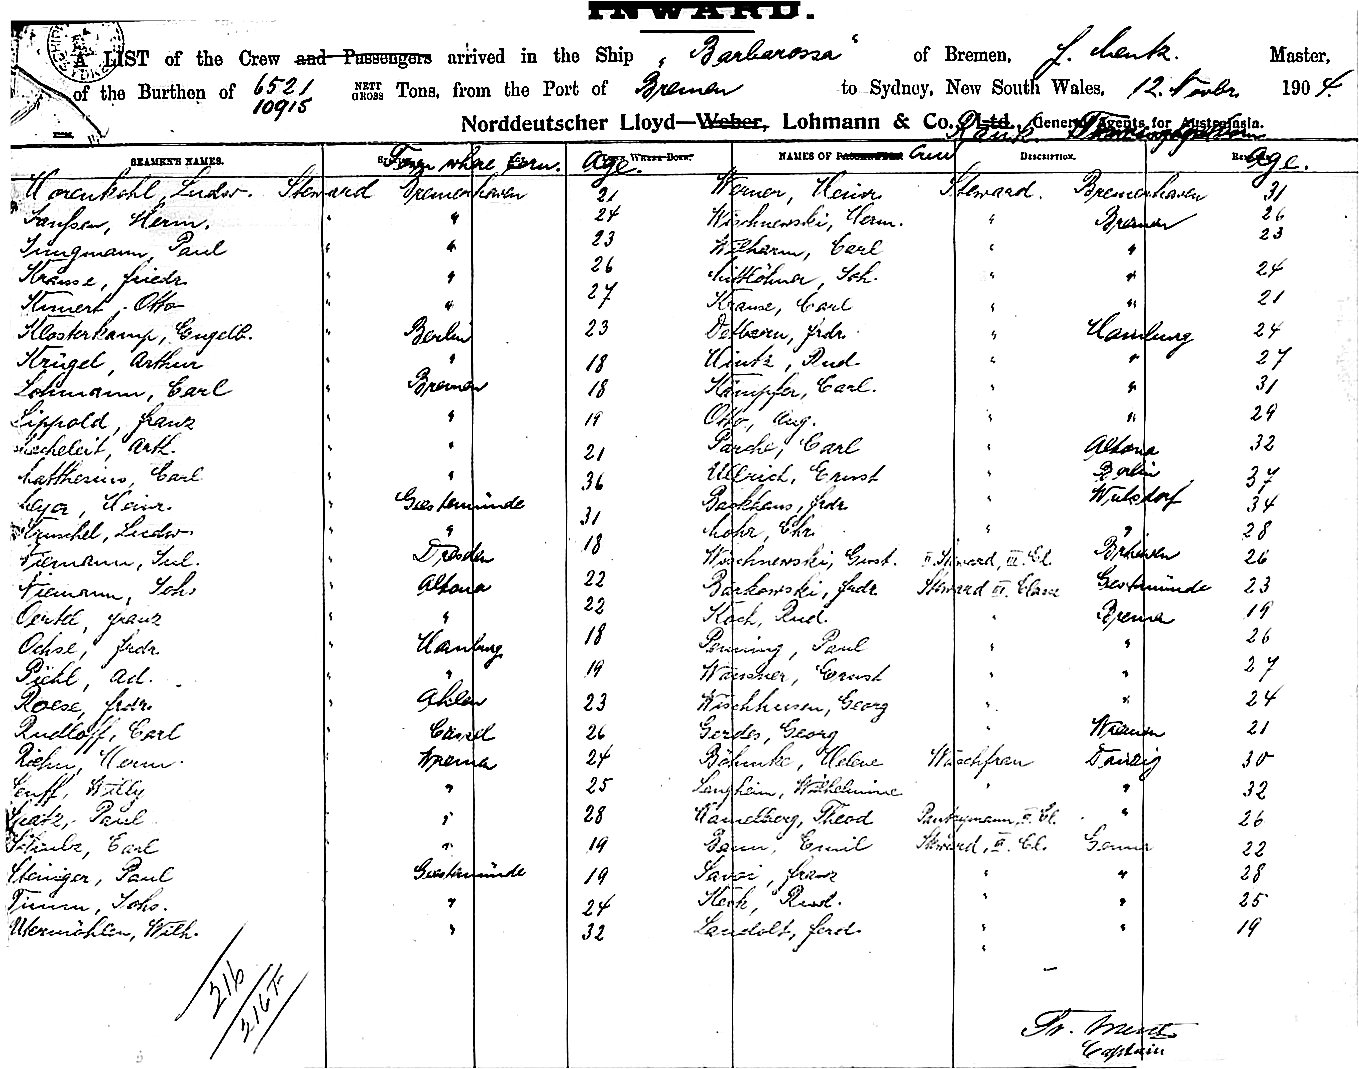 INWARD.
A LIST of the Crew and Passengers arrived in the Ship "Barbarossa" of Bremen, Mentz. Master,
of the Burthen of 6521 10915 NETT GROSS Tons, from the Port of Bremen to Sydney, New South Wales, 12 Novbr. 1904.
Norddeutscher Lloyd—Weber, Lohmann & Co. Ltd., General Agents for Australasia.
Rank
SEAMEN'S NAMES. Town where born. Age. WHERE BORN. NAMES OF PASSENGERS Crew DESCRIPTION. Age.
Horenkohl, Ludw. Steward Bremerhaven 21 Werner, Heinr. Steward. Bremerhaven 31
Janssen, Herm. " " 24 Wischnewski, Herm. " Bremen 26
Jungmann, Paul " " 23 Carl " " 23
Krause, Friedr. " " 26 Joh. " " 24
Kunert, Otto " " 27 Krause, Carl " " 21
Klosterkamp, Engelb. " Berlin 23 frdr. " Hamburg 24
Krügel, Arthur " " 18 Hintz, Rud. " " 27
Lohmann, Carl " Bremen 18 Kämpfer, Carl. " " 31
Lippold, Franz " " 19 Otto, Aug. " " 29
Arth. " " 21 Parche, Carl " Altona 32
Matthesius, Carl " " 36 Ullrich, Ernst " Berlin 37
Meyer, Heinr. " Geestemünde 31 Backhaus, frdr. " Wulsdorf 34
Ludw. " " 18 Mohr, Chr. " " 28
Niemann, Jul. " Dresden Wischnewski, Gust. II Steward, III. Cl. Brhaven 26
Niemann, Johs " Altona 22 Barkowski, frdr. Steward III. Class Geestemünde 23
Oertel, Franz " " 22 Koch, Rud. " Bremen 19
Ochse, frdr. " Hamburg 18 Penning, Paul " " 26
Piehl, Ad. " " 19 Ernst " " 27
Roese, frdr. " Ahlen 23 Wischhusen, Georg " " 24
Rudloff, Carl " Cassel 26 Gerdes, Georg " Wremen 21
Riehn, Herm. " Bremen 24 Böhmke, Helene Waschfrau Danzig 30
Senff, Willy " " 25 Langhein, Wilhelmine " " 32
Paul " " 28 Hamelberg, Theod Pantrymann, II. Cl. " 26
Schulz, Carl " " 19 Baum, Emil Steward, II. Cl. Genua 22
Steiniger, Paul " Geestemünde 19 Savoi, Franz " " 28
Timm, Johs. " " 24 Keck, Rud. " " 25
Uhrmöhlen, Wilh. " 32 Landolt, ferd. " " 19
216
216 F
Captain